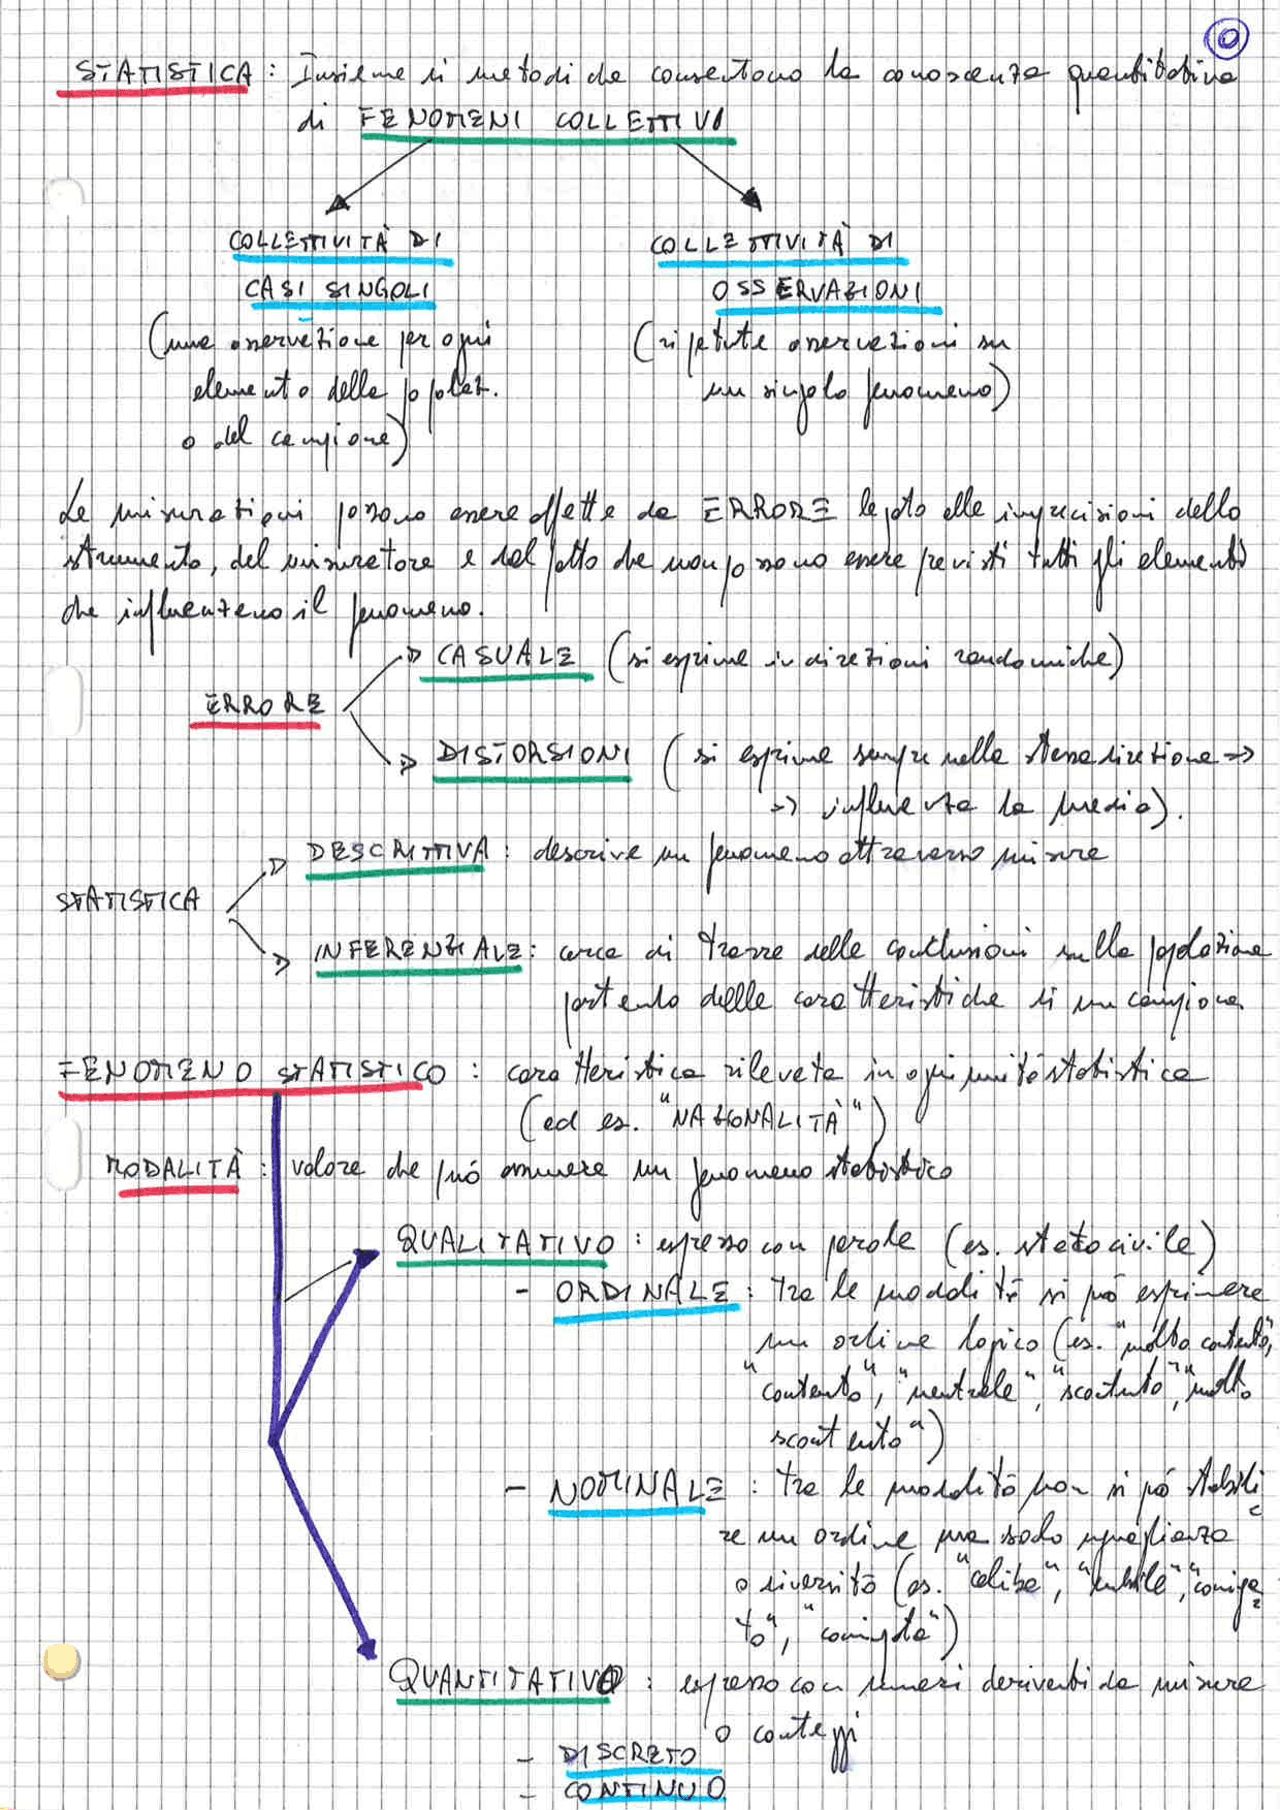 0
STATISTICA: Insieme di metodi che consentono la conoscenza quantitativa
di FENOMENI COLLETTIVI
COLLETTIVITÀ DI
CASI SINGOLI
(una osservazione per ogni
elemento della popolaz.
o del campione)
COLLETTIVITÀ DI
OSSERVAZIONI
(ripetute osservazioni su
un singolo fenomeno)
Le misurazioni possono essere affette da ERRORE legato alle imprecisioni dello
strumento, del misuratore e dal fatto che non possono essere previsti tutti gli elementi
che influenzano il fenomeno.
ERRORE
CASUALE (si esprime in direzioni randomiche)
DISTORSIONI (si esprime sempre nella stessa direzione =>
=> influenza la media).
STATISTICA
DESCRITTIVA: descrive un fenomeno attraverso misure
INFERENZIALE: cerca di trarre delle conclusioni sulla popolazione
partendo dalle caratteristiche di un campione
FENOMENO STATISTICO: caratteristica rilevata in ogni unità statistica
(ad es. "NAZIONALITÀ")
MODALITÀ: valore che può assumere un fenomeno statistico
QUALITATIVO: espresso con parole (es. stato civile)
- ORDINALE: tra le modalità si può esprimere
un ordine logico (es. "molto contento",
"contento", "neutrale", "scontento", "molto
scontento")
- NOMINALE: tra le modalità non si può stabili
re un ordine ma solo uguaglianza
o diversità (es. "celibe", "nubile", "coniuga
to", "coniugata")
QUANTITATIVO: espresso con numeri derivanti da misure
o conteggi
- DISCRETO
- CONTINUO